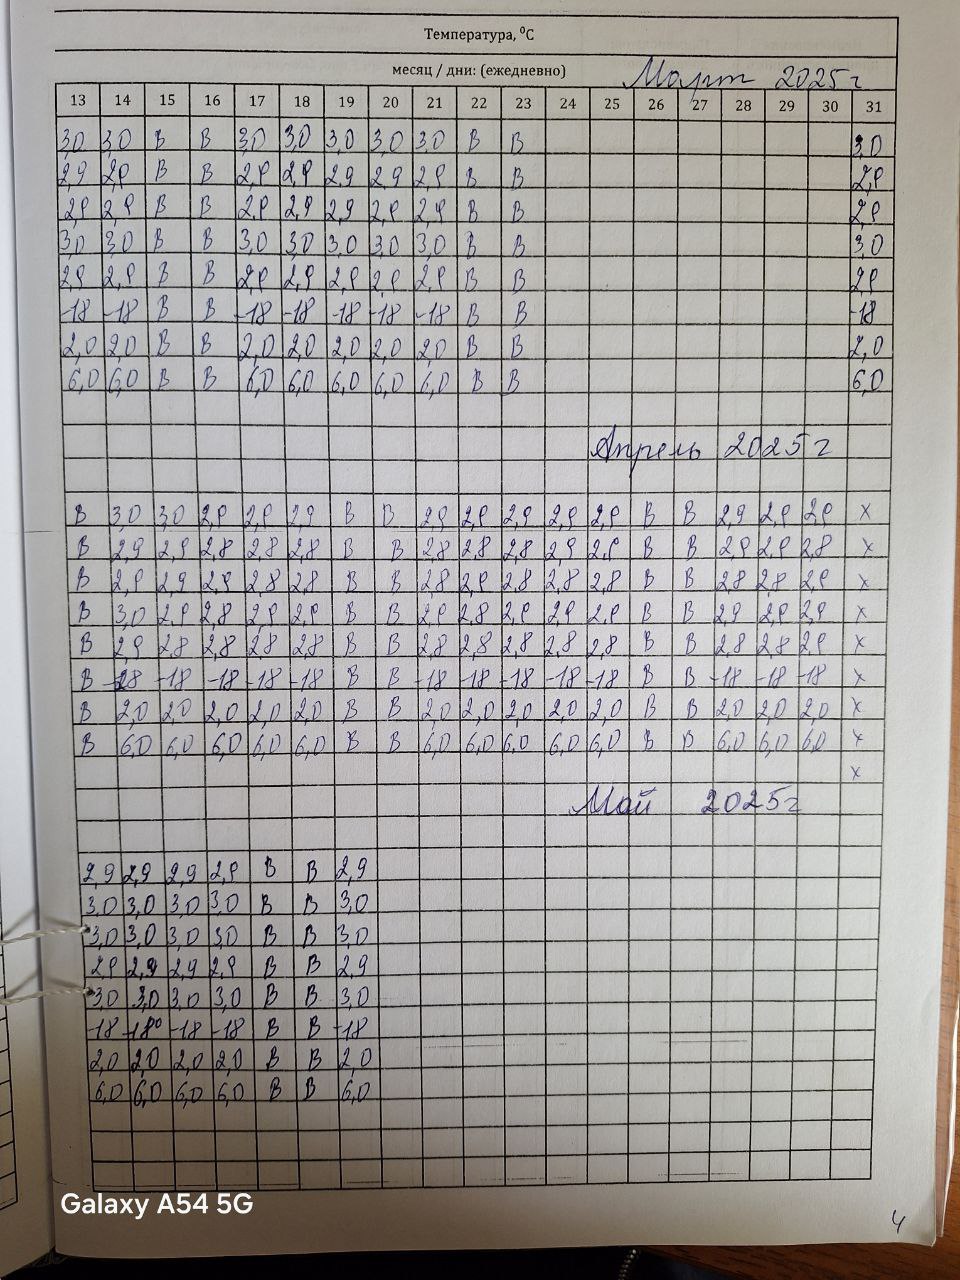 Температура, ⁰С
месяц / дни: (ежедневно) Март 2025г
13 14 15 16 17 18 19 20 21 22 23 24 25 26 27 28 29 30 31
3,0 3,0 В В 3,0 3,0 3,0 3,0 3,0 В В 3,0
2,9 2,9 В В 2,9 2,9 2,9 2,9 2,9 В В 2,9
2,9 2,9 В В 2,9 2,9 2,9 2,9 2,9 В В 2,9
3,0 3,0 В В 3,0 3,0 3,0 3,0 3,0 В В 3,0
2,9 2,9 В В 2,9 2,9 2,9 2,9 2,9 В В 2,9
-18 -18 В В -18 -18 -18 -18 -18 В В -18
2,0 2,0 В В 2,0 2,0 2,0 2,0 2,0 В В 2,0
6,0 6,0 В В 6,0 6,0 6,0 6,0 6,0 В В 6,0
Апрель 2025г
В 3,0 3,0 2,9 2,9 2,9 В В 2,9 2,9 2,9 2,9 2,9 В В 2,9 2,9 2,9 х
В 2,9 2,9 2,8 2,8 2,8 В В 2,8 2,8 2,8 2,9 2,9 В В 2,9 2,9 2,8 х
В 2,9 2,9 2,9 2,8 2,8 В В 2,8 2,9 2,8 2,8 2,8 В В 2,8 2,8 2,9 х
В 3,0 2,9 2,8 2,9 2,9 В В 2,9 2,8 2,9 2,9 2,9 В В 2,9 2,9 2,9 х
В 2,9 2,8 2,8 2,8 2,8 В В 2,8 2,8 2,8 2,8 2,8 В В 2,8 2,8 2,9 х
В -18 -18 -18 -18 -18 В В -18 -18 -18 -18 -18 В В -18 -18 -18 х
В 2,0 2,0 2,0 2,0 2,0 В В 2,0 2,0 2,0 2,0 2,0 В В 2,0 2,0 2,0 х
В 6,0 6,0 6,0 6,0 6,0 В В 6,0 6,0 6,0 6,0 6,0 В В 6,0 6,0 6,0 х
х
Май 2025г
2,9 2,9 2,9 2,9 В В 2,9
3,0 3,0 3,0 3,0 В В 3,0
3,0 3,0 3,0 3,0 В В 3,0
2,9 2,9 2,9 2,9 В В 2,9
3,0 3,0 3,0 3,0 В В 3,0
-18 -18⁰ -18 -18 В В -18
2,0 2,0 2,0 2,0 В В 2,0
6,0 6,0 6,0 6,0 В В 6,0
Galaxy A54 5G
4